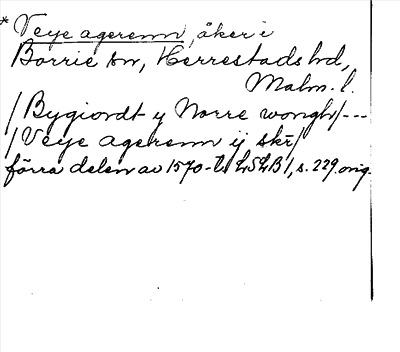 * Veye agerenn, åker i
Borrie sn, Herrestads hd,
Malm. l.
/Bygiordt y Norre wongh/---
/Veye agerenn ij skr/
förra delen av 1570-t. LSLB1, s. 229. orig.